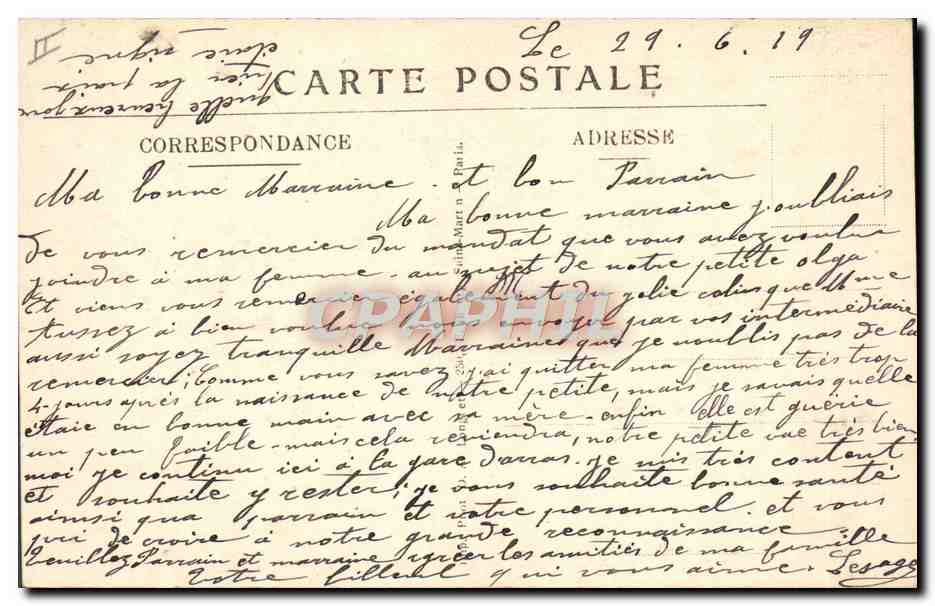 Le 29.6.19
quelle heureux jour
hier la paix
étaie signé
CARTE POSTALE
CORRESPONDANCE
ADRESSE
Ma bonne Marraine et bon Parrain
Ma bonne marraine j'oubliais
de vous remercier du mandat que vous avez voulue
joindre à ma femme au sujet de notre petite olga
Et viens vous remercier également du jolie colis que Mme
Tussez à bien voulue nous envoyer par vos intermédiaire
aussi soyez tranquille Marraine que je n'oublis pas de la
remercier; Comme vous savez j'ai quitter ma femme très trop
4 jours après la naissance de notre petite, mais je savais quelle
étaie en bonne main avec sa mère enfin elle est guérie
un peu faible mais cela reviendra, notre petite vae très bien
moi je continu ici à la gare d'arras. je suis très content
et souhaite y rester; je vous souhaite bonne santé
ainsi qua parrain et votre personnel. et vous
pri de croire à notre grande reconnaissance.
Veuillez Parrain et marraine agréer les amitiés de ma famille
Votre filleul qui vous aime. Lesage
CPAPHIL